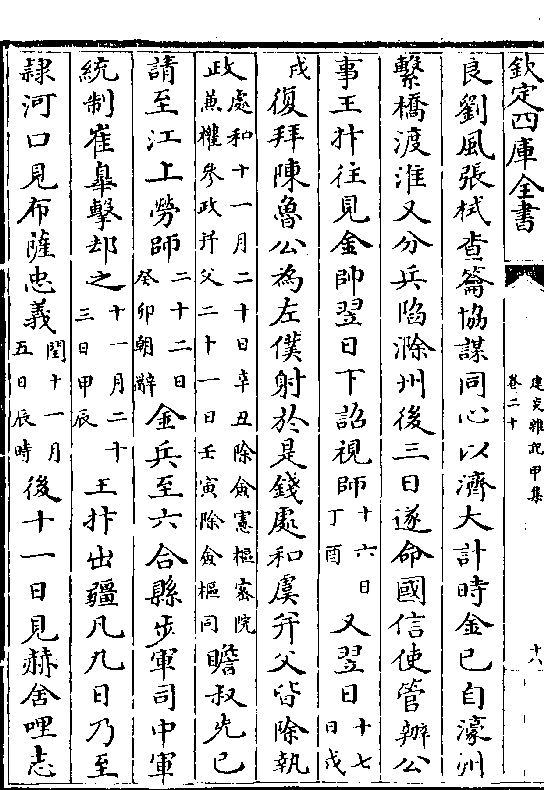 欽定四庫全書
建炎雜記甲集
卷二十
十八
良劉風張栻查籥協謀同心以濟大計時金已自濠州
繫橋渡淮又分兵陷滁州後三日遂命國信使管辦公
事王抃往見金帥翌日下詔視師十六日丁酉又翌日十七日戊
戌復拜陳魯公為左僕射於是錢處和虞幷父皆除執
政處和十一月二十日辛丑除僉憲樞密院兼權參政幷父二十一日壬寅除僉樞同瞻叔先已
請至江上勞師二十二日癸卯朝辭金兵至六合縣步軍司中軍
統制崔臯擊却之十一月二十三日甲辰王抃出疆凡九日乃至
隷河口見布薩忠義閏十一月五日辰時後十一日見赫舍哩志